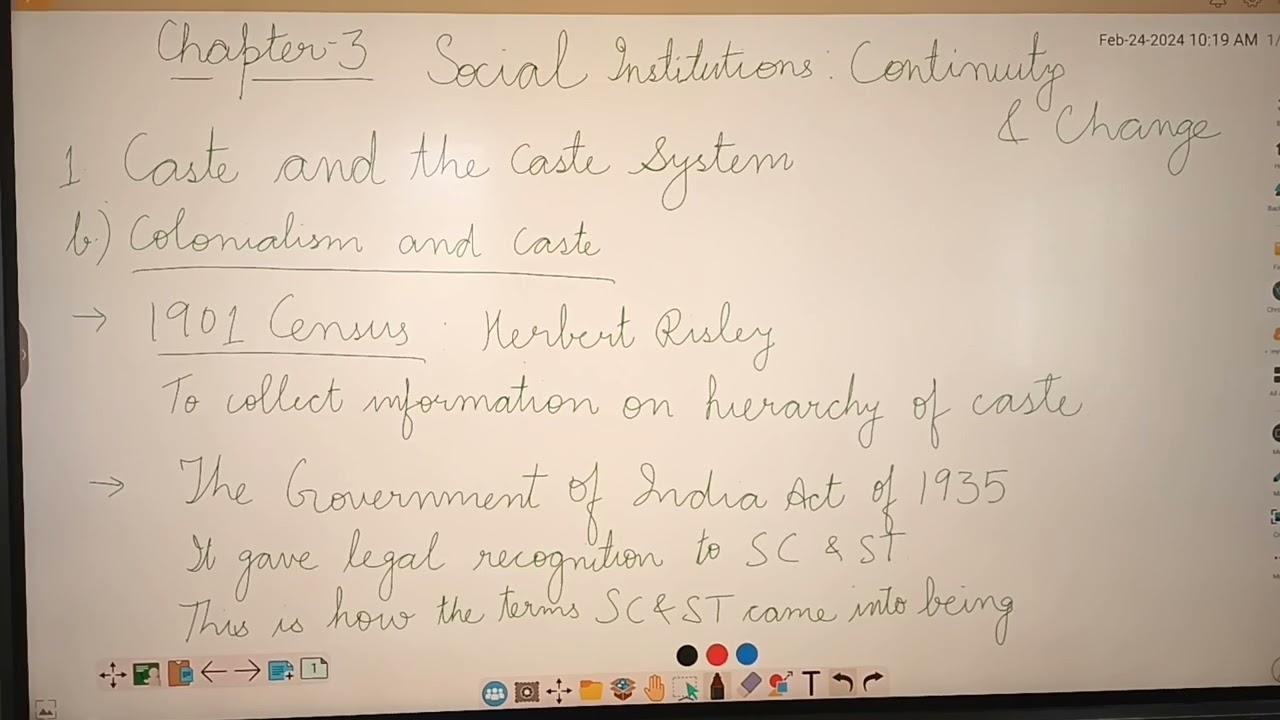 Feb-24-2024 10:19 AM 1/
Chapter-3 Social Institutions: Continuity
& Change
1 Caste and the Caste System
b) Colonialism and Caste
→ 1901 Census : Herbert Risley
To collect information on hierarchy of caste
→ The Government of India Act of 1935
It gave legal recognition to SC & ST
This is how the terms SC & ST came into being
1
T